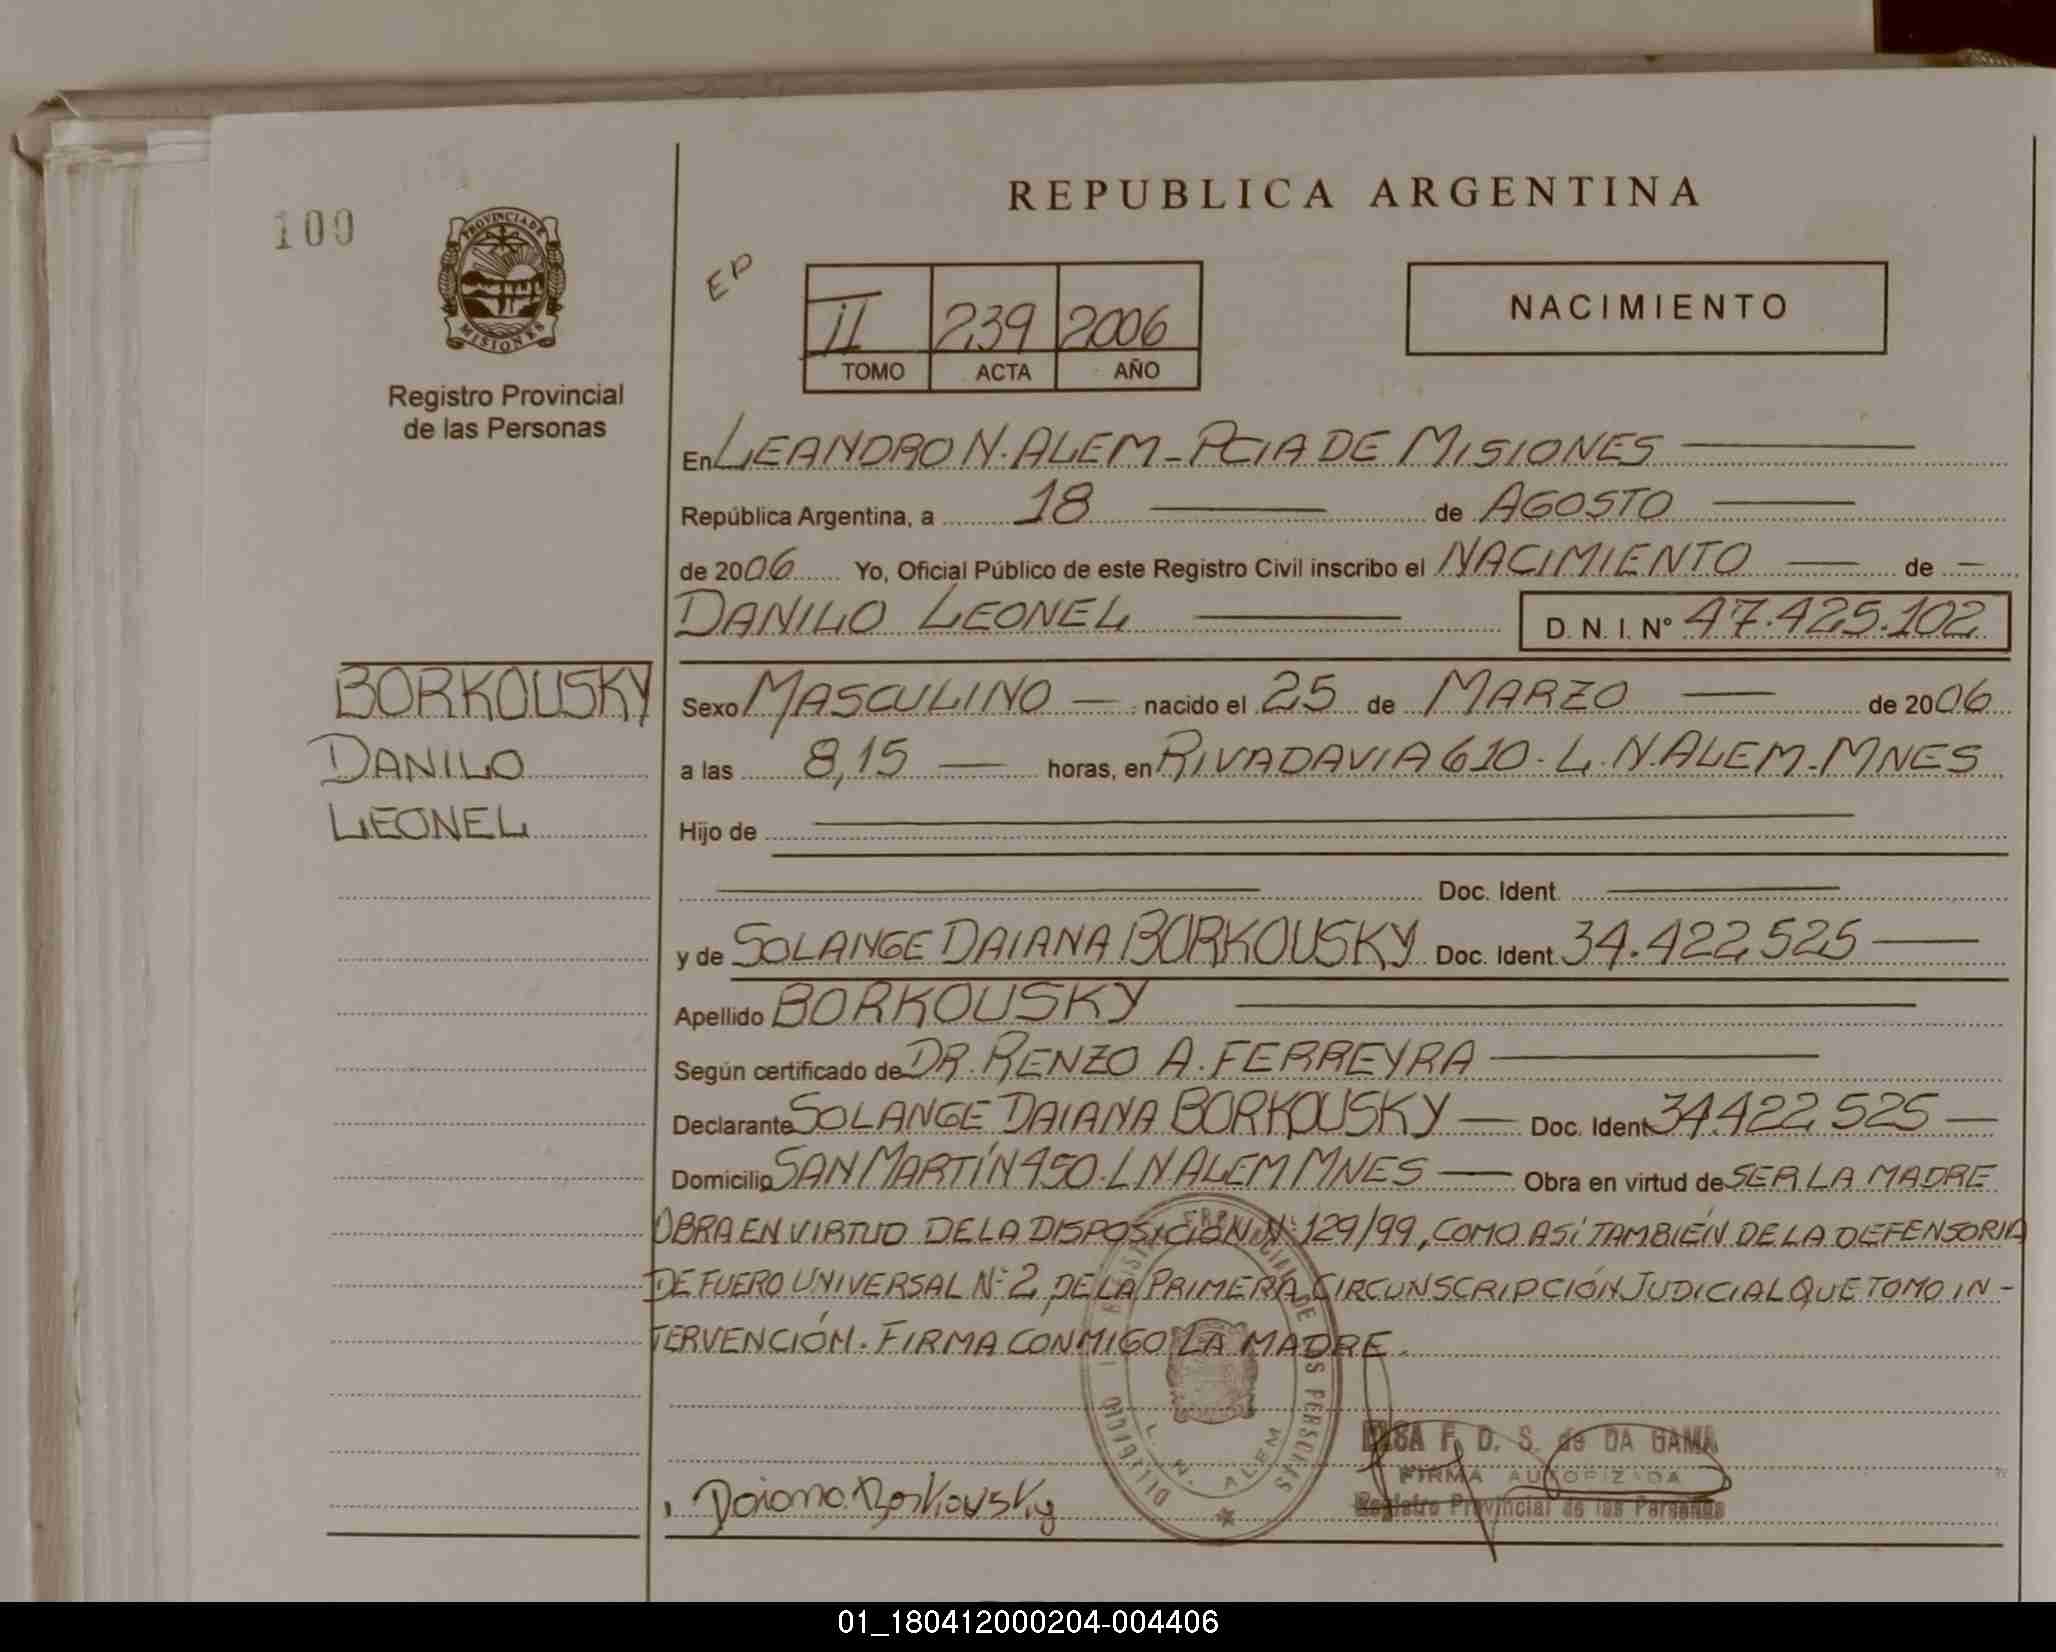 REPUBLICA ARGENTINA
100
PROVINCIA DE MISIONES
EP
II 239 2006
TOMO ACTA AÑO
NACIMIENTO
Registro Provincial
de las Personas
En LEANDRO N. ALEM - PCIA DE MISIONES
República Argentina, a 18 de AGOSTO
de 2006 Yo, Oficial Público de este Registro Civil inscribo el NACIMIENTO de
DANILO LEONEL D. N. I. N° 47.425.102
BORKOUSKY
DANILO
LEONEL
Sexo MASCULINO nacido el 25 de MARZO de 2006
a las 8,15 horas, en RIVADAVIA 610 - L. N. ALEM - MNES
Hijo de
y Doc. Ident.
y de SOLANGE DAIANA BORKOUSKY Doc. Ident. 34.422.525
Apellido BORKOUSKY
Según certificado de DR. RENZO A. FERREYRA
Declarante SOLANGE DAIANA BORKOUSKY Doc. Ident. 34.422.525
Domicilio SAN MARTÍN 450 - L N ALEM MNES Obra en virtud de SER LA MADRE
OBRA EN VIRTUD DE LA DISPOSICIÓN N° 129/99, COMO ASÍ TAMBIÉN DE LA DEFENSORIA
DE FUERO UNIVERSAL N° 2 DE LA PRIMERA CIRCUNSCRIPCIÓN JUDICIAL QUE TOMO IN-
TERVENCIÓN. FIRMA CONMIGO LA MADRE.
L. N. ALEM
Daiana Borkousky
ELSA F. D. S. de DA GAMA
FIRMA AUTORIZADA
Registro Provincial de las Personas
01_180412000204-004406